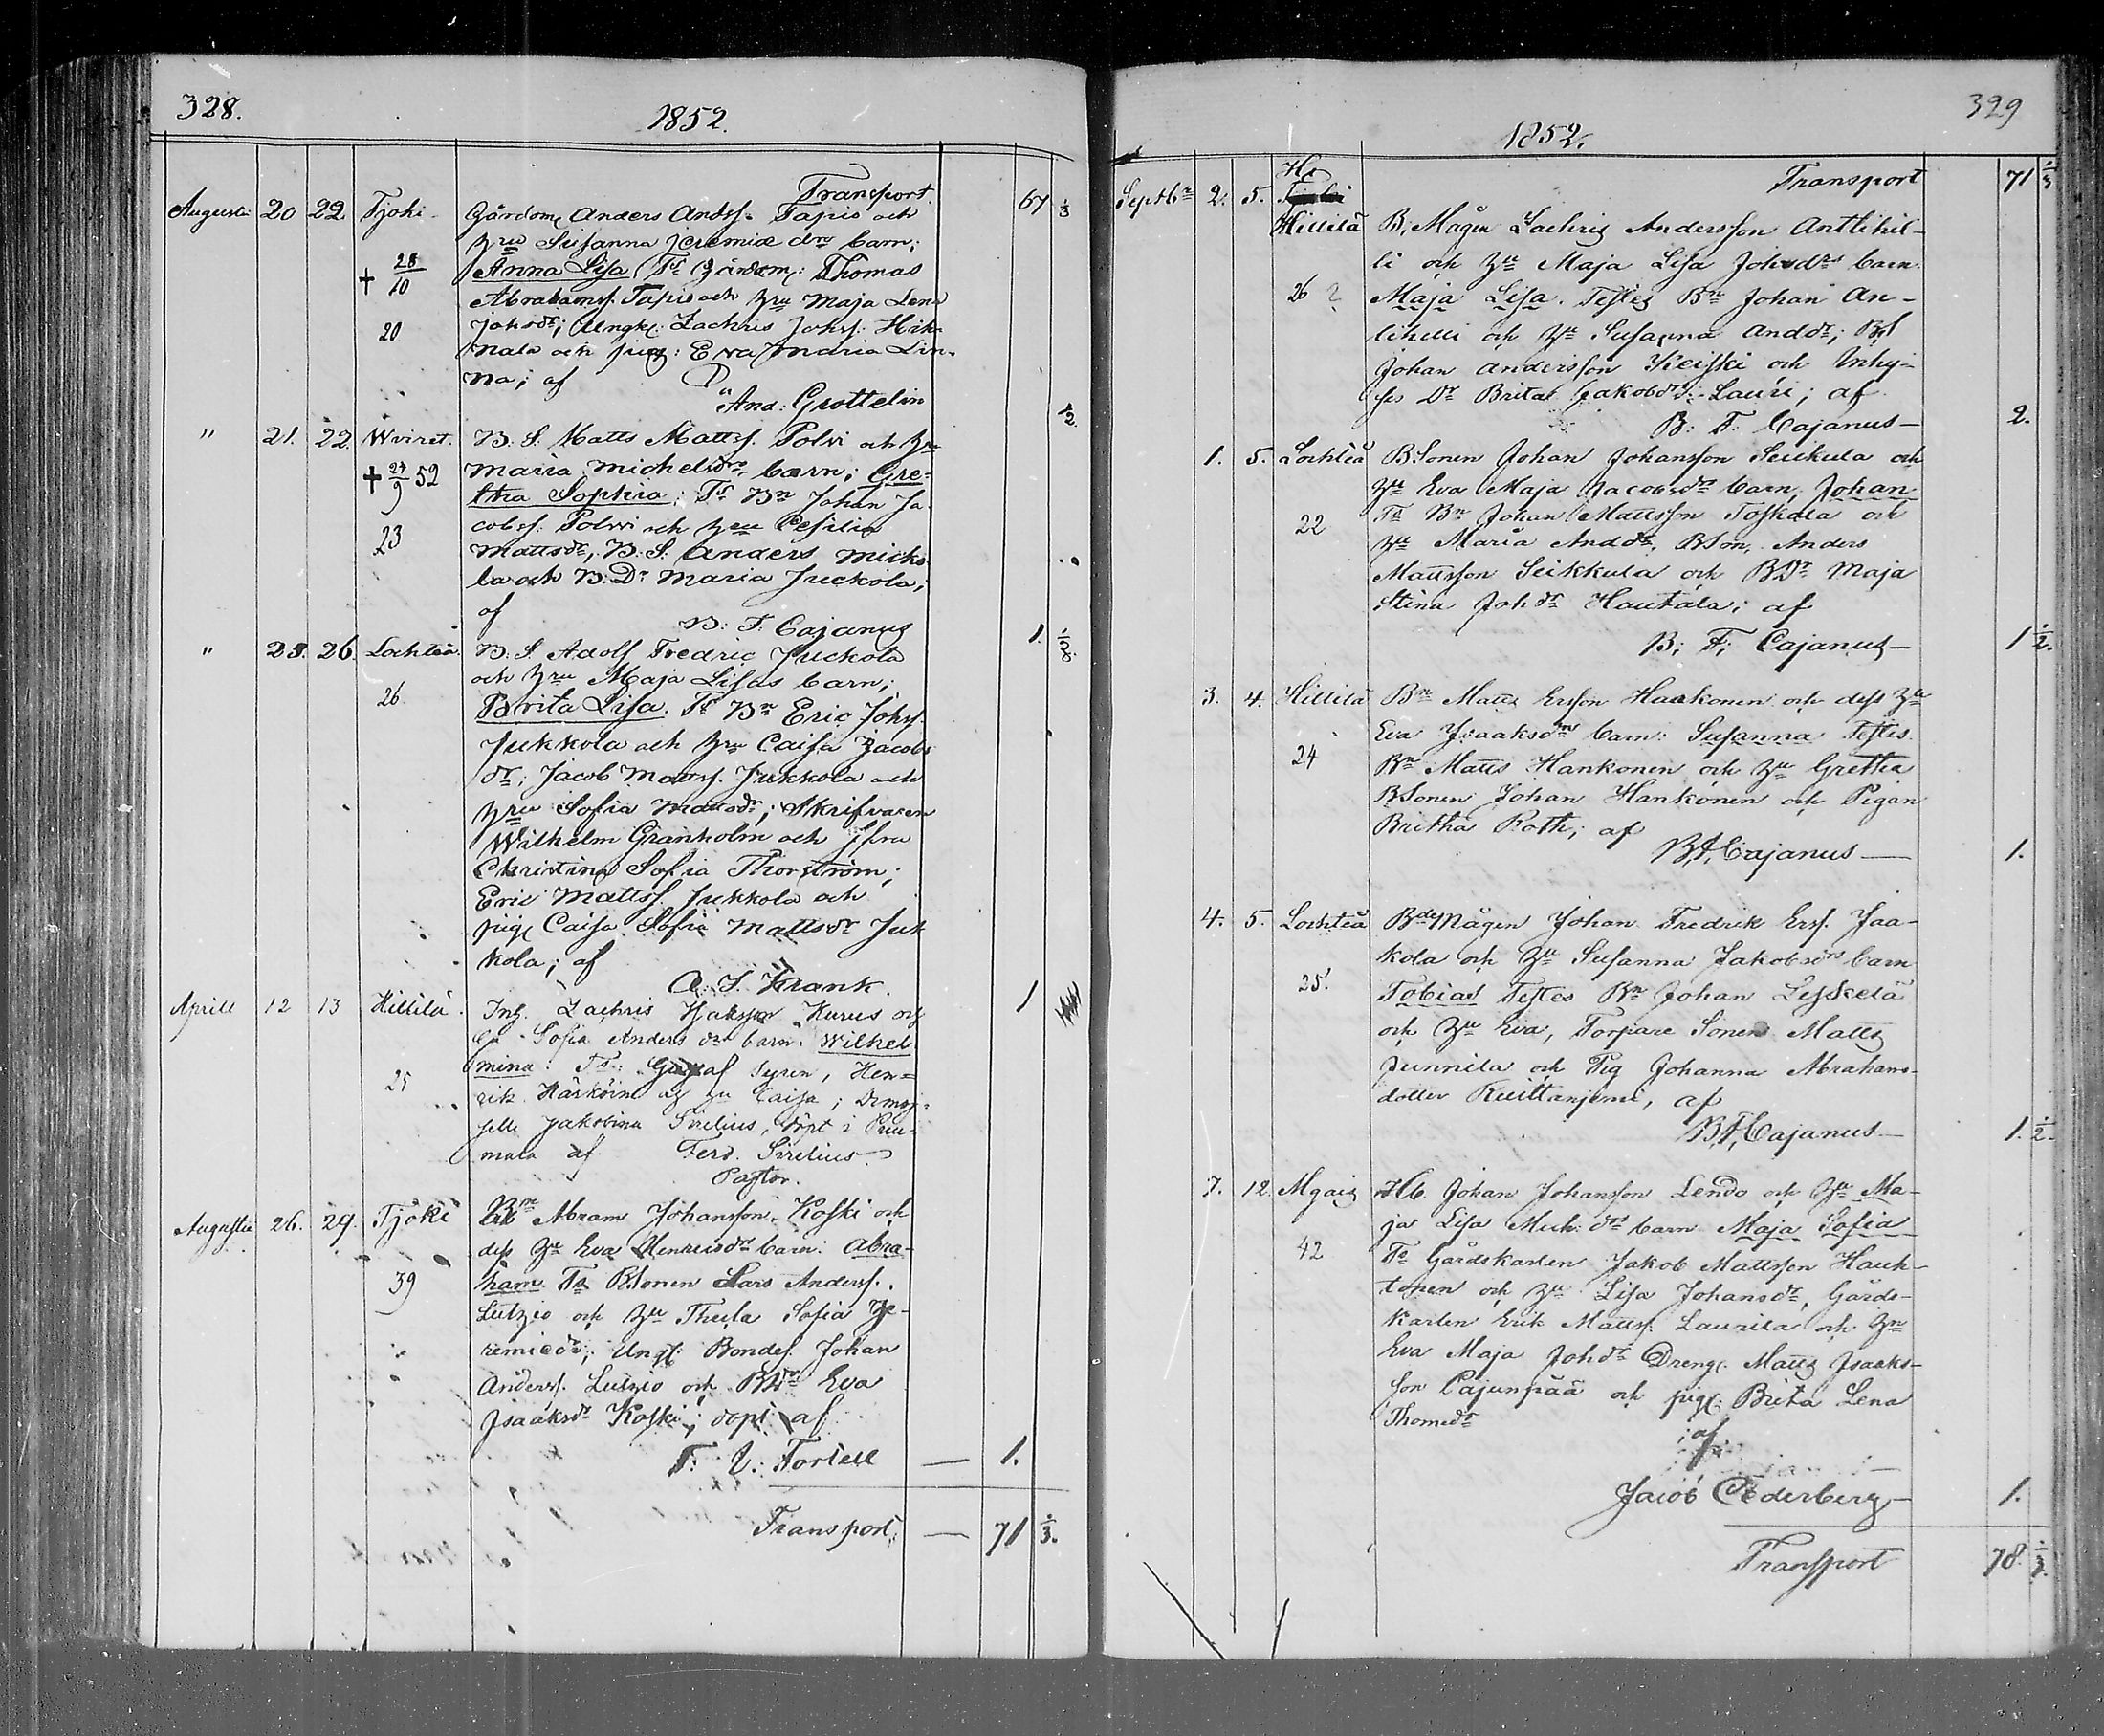 328.
1852.
Transport. 67 1/3
Augusti 20 22 Tjoki Gårdom: Anders Andsf. Tapio och
hru Susanna Jeremiæ drs barn;
+ 28/10 Anna Lisa. Ts Gårdem: Thomas
Abrahamsf. Tapio och hru Maja Lena
20 Johsdr; Ungk: Zachris Johsf. Hik-
nala och pig: Eva Maria Lin-
na; af
And: Grottelin 1/2
" 21. 22. Wviret. B. S. Matts Mattsf. Polvi och hru
+ 24/9 52 Maria Michelsdrs barn; Gre-
tha Sophia; Ts Bn Johan Ja-
cobsf. Polvi och hru Cesilia
23 Mattsdr, B. S. Anders Micko-
la och B: Dr Maria Juckola;
af
B. F. Cajanus 1. 1/2
" 25. 26. Lochteå. B. S. Adolf Fredric Juckola
och hru Maja Lisas barn;
26 Brita Lisa. Ts Bn Eric Johsf.
Juckkola och hru Caisa Jacobs
dr; Jacob Mattsf. Juckkola och
hru Sofia Mattsdr; Skrifvaren
Wilhelm Granholm och Jfru
Christina Sofia Thorström;
Eric Mattsf. Juckkola och
pig Caisa Sofia Mattsdr Juk
kola; af
A. F. Krank.
Aprill 12 13 Hillilä. Inh. Zachris Kurus och 1
Sofia Anders drs barn: Wilhel
mina. Ts: Gustaf Syren, Hen-
25 rik och hu Caisa; Demoi-
selle Jakobina Sirelius, döpt i Puu-
mala af Ferd. Sirelius.
Pastor.
Augusti 26. 29. Tjoki Bn Abram Johansson Koski och
dess hu Eva Henricsdrs barn: Abra-
39 ham. Ts BSonen Lars Andersf.
Lutzio och hu Theda Sofia Je-
remiædr; Ungk: Bondes. Johan
Andersf. Lutzio och BDn Eva
Isaaksdr Koski; döpt af
F. U. Forsell — 1.
Transport. — 71 1/3.
329
1852.
Transport 71 1/3
Septbr 2. 5. Hillilä B; Mågen Zachris Andersson Anttihil-
li och hu Maja Lisa Johsdrs barn
26 ? Maja Lisa. Testes Bn Johan An-
tihilli och hu Susanna Anddr; BS
Johan Andersson Keiski och Inhy-
ses Dr Brita Jakobdr Lauri; af
B: F: Cajanus— 2.
1. 5. Lochteå BSonen Johan Johansson Seikula och
hu Eva Maja Jacobsdrs barn Johan
22 Ts Bn Johan Mattsson Toskala och
hu Maria Anddr, BSon. Anders
Mattsson Seikkula och BDr Maja
Stina Johdr Hautala; af
B; F; Cajanus— 1 1/2.
3. 4. Hillilä Bn Matts Ersson Hankonen och dess hu
Eva Isaaksdrs barn: Susanna Testis.
24 Bn Matts Hankonen och hu Gretha
BSonen Johan Hankonen och Pigan
Britha Roth; af
B,F,Cajanus— 1.
4. 5. Lochteå BdeMågen Johan Fredrik Ersf. Jaa-
kola och hu Susanna Jakobsdrs barn
25. Tobias Testes Bn Johan Leskelä
och hu Eva, Torpare Sonen Matts
Junnila och Pig Johanna Abrahams-
dotter Kuittanjemi, af
B,F,Cajanus— 1. 1/2.
7. 12 Mgais Hb. Johan Johansson Lendo och hu Ma-
ja Lisa Mich: drs barn Maja Sofia
42 Ts Gårdskarlen Jakob Mattsson Hauh-
tonen och hu Lisa Johansdr, Gårds-
karlen Erik Mattsf. Laurila och hu
Eva Maja Johdr Dreng: Matts Isaaks-
son Cajunpää och pig: Brita Lena
Thomedr
; af
Jacob Cederberg— 1.
Transport 78. 1/3.